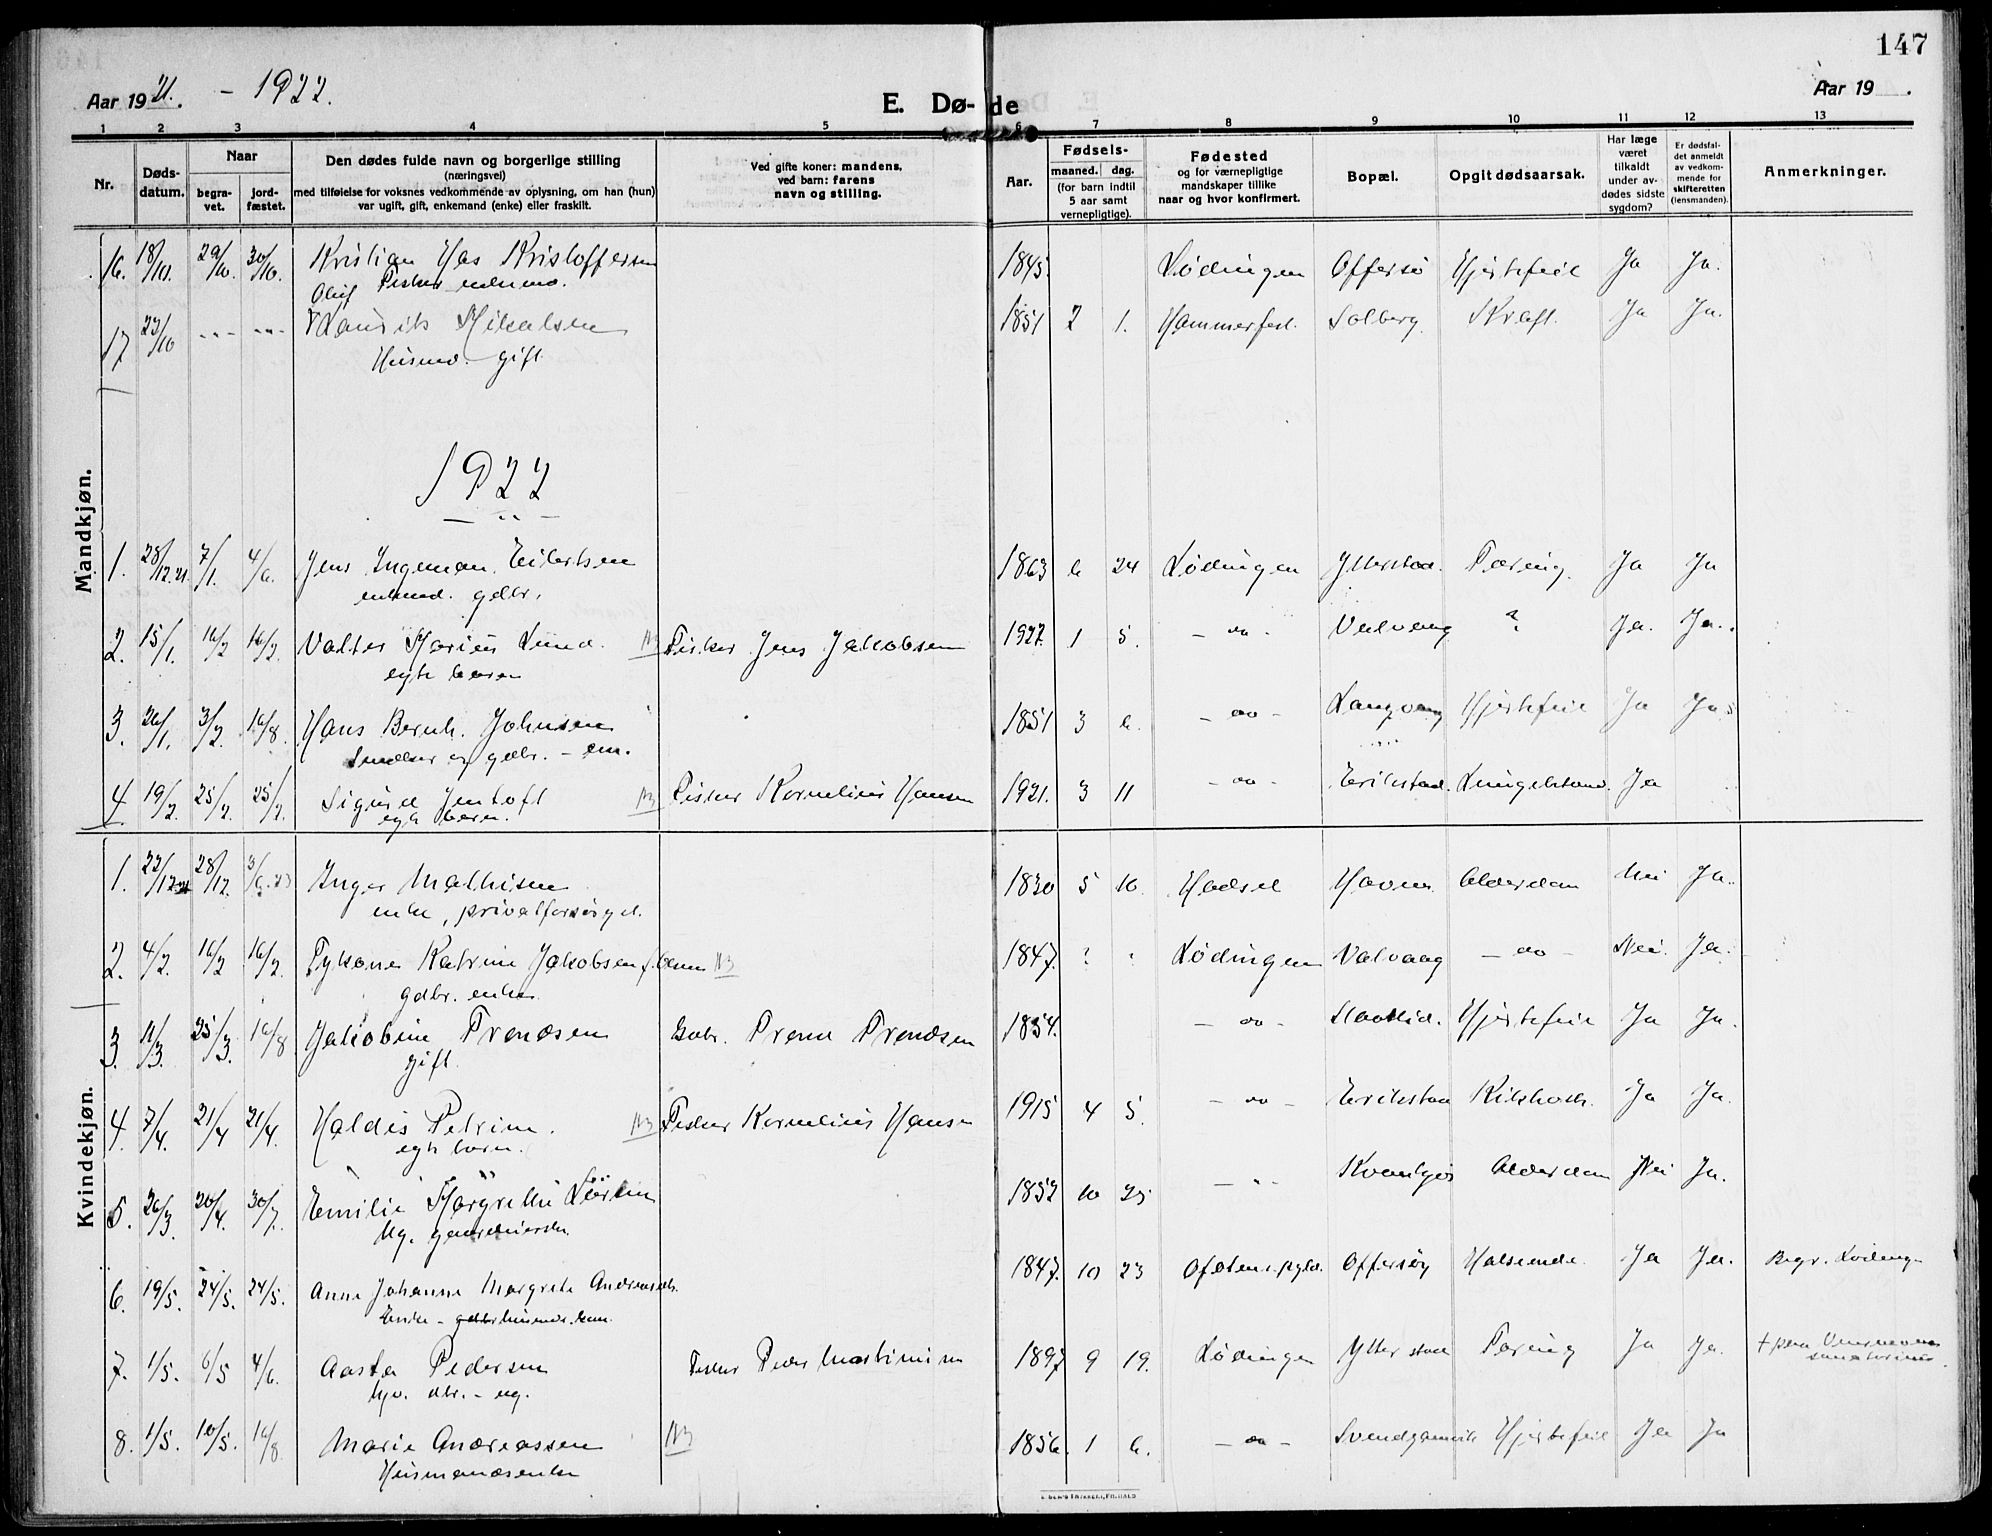 147
Aar 1921. - 1922.
E. Dø- de
Aar 19 .
1 2 3 4 5 6 7 8 9 10 11 12 13
Nr.
Døds-
datum.
Naar
begra-
vet.
jord-
fæstet.
Den dødes fulde navn og borgerlige stilling
(næringsvei)
med tilføielse for voksnes vedkommende av oplysning, om han (hun)
var ugift, gift, enkemand (enke) eller fraskilt.
Ved gifte koner: mandens,
ved barn: farens
navn og stilling.
Aar.
Fødsels-
maaned. dag.
(for barn indtil
5 aar samt
vernepligtige).
Fødested
og for værnepligtige
mandskaper tillike
naar og hvor konfirmert.
Bopæl.
Opgit dødsaarsak.
Har læge
været
tilkaldt
under av-
dødes sidste
sygdom?
Er dødsfal-
det anmeldt
av vedkom-
mende for
skifteretten
(lensmanden).
Anmerkninger.
Mandkjøn.
16. 18/10. 29/10. 30/10. Kristian Has Kristoffersen 1845 Lødingen Offersø Hjertefeil Ja Ja.
Fisker
17 23/10 - - - - Laurits Mikalsen 1851 2 1. Hammerfest. Solberg. Kræft. Ja Ja.
Husmd. gift
1922
1. 28/12.21. 7/1. 4/6. Jens Ingeman Eilertsen 1863 6 24 Lødingen Ytterstad. Tæring. Ja Ja
gdbr.
2. 15/1. 16/2 16/2. Valter Marius Lund. NB Fisker Jens Jakobsen 1922. 1 5. - do - ? Ja. Ja.
egte barn
3. 26/1. 3/2. 16/8. Hans Bernh. Johnsen 1851 3 6. - do - Langvaag Hjertefeil Ja Ja
Snedker og gdbr. - em.
4. 19/2. 25/2. 25/2. Sigurd Jentoft NB Fisker Kornelius Hansen 1921. 3 11 - do - Erikstad. Lungebetænd. Ja
egte barn.
Kvindekjøn.
1. 22/12 21 28/12. 3/6. 23 Inger Mathisen 1830 5 10. Hadsel Havnes Alderdom Nei Ja.
enke, privatforsørget.
2. 4/2. 16/2 16/2. Katrine Jakobsen f. Olsen NB 1847. ? Lødingen Valvaag - do - Nei. Ja.
gdbr. enke.
3. 11/3. 25/3. 16/8 Jakobine Trondsen Gdbr. Trond Trondsen 1854. - do - Hjertefeil Ja Ja.
gift.
4. 7/4. 21/4 21/4. Haldis Petrine. NB Fisker Kornelius Hansen 1915 4 5. - do - Erikstad Kikhoste. Ja Ja.
egte barn.
5. 26/3. 20/4. 30/7. Emilie Margrethe 1852 10 25 - " - Alderdom Nei Ja.
Ug.
6. 19/5. 24/5. 24/5. Anne Johanne Margrete Andreasdtr. 1847. 10 23 Offersøy Ja Ja. Begr. Lødingen
Enke -
7. 1/5. 6/5 4/6. Aasta Pedersen Fisker Peder Martinsen 1897 9 19. Lødingen Ytterstad Tæring Ja Ja.
- ug.
8. 1/5. 10/5. 16/8. Marie Andreassen NB 1856. 1 6. - do - Hjertefeil Ja Ja
Husmandsenke